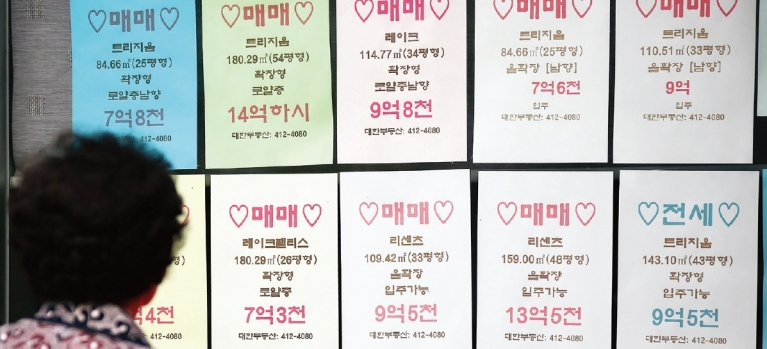 ♡매매♡
트리지움
84.66㎡(25평형)
확장형
로얄층남향
7억8천
대한부동산: 412-4080
♡매매♡
트리지움
180.29㎡(54평형)
확장형
로얄층
14억하시
대한부동산: 412-4080
♡매매♡
레이크
114.77㎡(34평형)
확장형
로얄층남향
9억8천
대한부동산: 412-4080
♡매매♡
트리지움
84.66㎡(25평형)
올확장 [남향]
7억6천
입주
대한부동산: 412-4080
♡매매♡
트리지움
110.51㎡(33평형)
올확장 [남향]
9억
입주
대한부동산: 412-4080
형)
4천
4080
♡매매♡
레이크팰리스
180.29㎡(26평형)
확장형
로얄층
7억3천
대한부동산: 412-4080
♡매매♡
리센츠
109.42㎡(33평형)
올확장
입주가능
9억5천
대한부동산: 412-4080
♡매매♡
리센츠
159.00㎡(48평형)
올확장
입주가능
13억5천
대한부동산: 412-4080
♡전세♡
트리지움
143.10㎡(43평형)
확장형
입주가능
9억5천
대한부동산: 412-4080